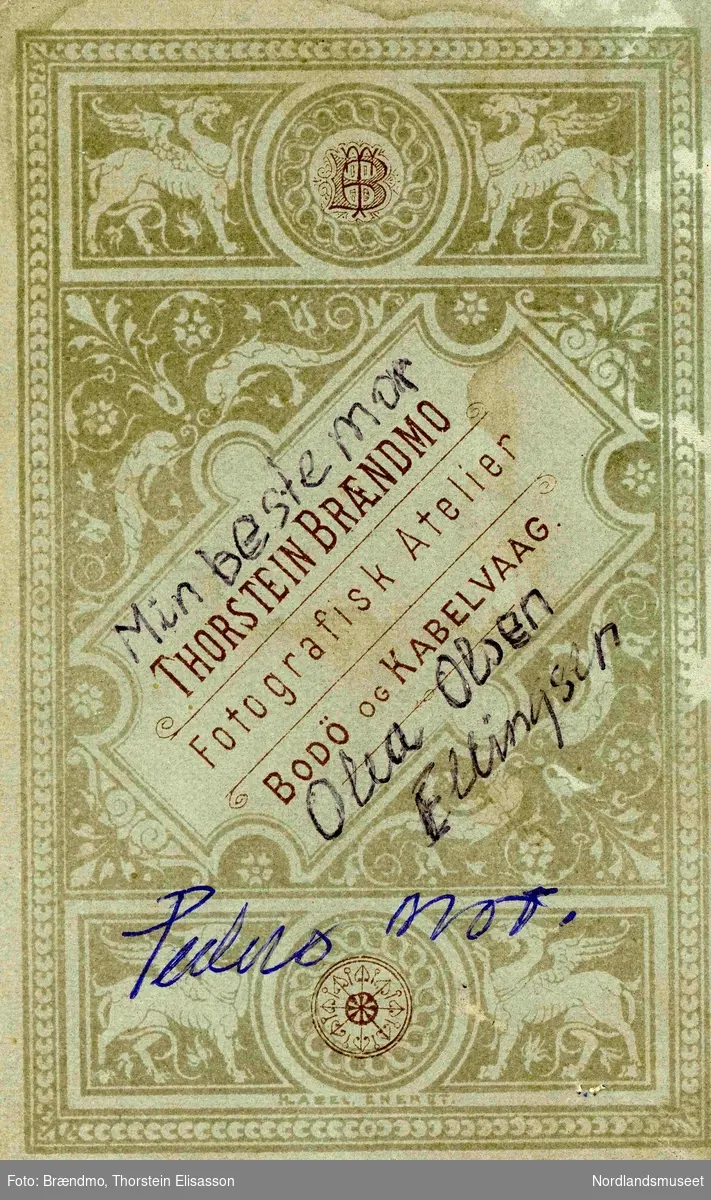 TB
Min bestemor
THORSTEIN BRÆNDMO
Fotografisk Atelier
BODÖ OG KABELVAAG.
Olea Olsen
Ellingsen
Peders mor.
EN ERET.
Foto: Brændmo, Thorstein Elisasson
Nordlandsmuseet